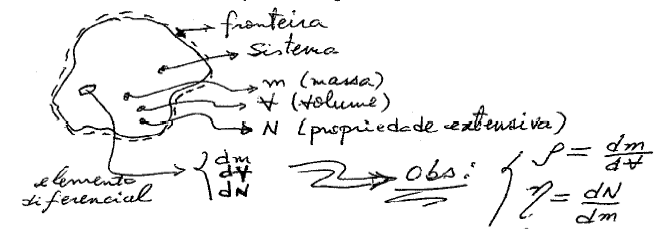 fronteira
Sistema
m (massa)
V̶ (volume)
N (propriedade extensiva)
elemento
diferencial
dm
dV̶
dN
obs:
ρ = dm/dV̶
η = dN/dm